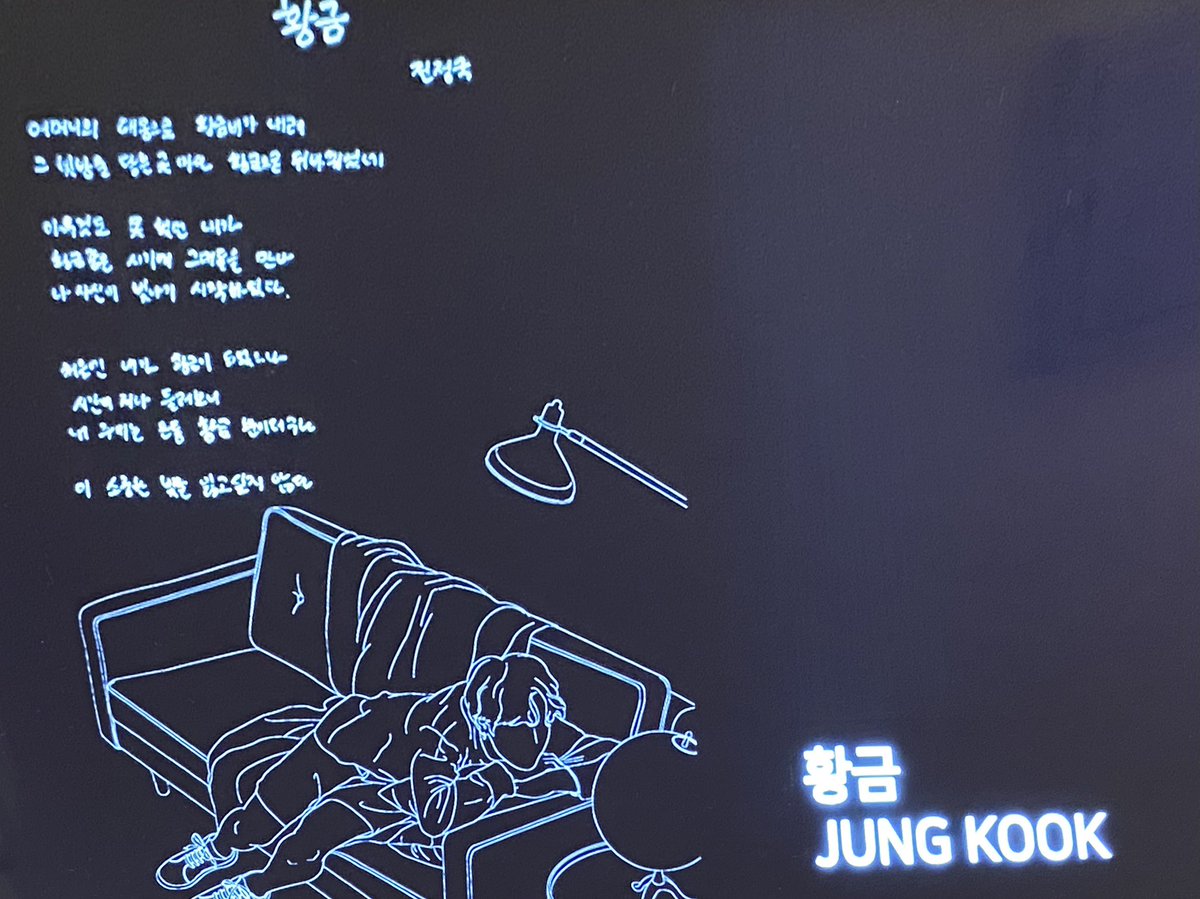 황금
전정국
어머니의 태몽으로 황금비가 내려
그 빗방울 닿은 곳 마다 황금으로 뒤바뀌었네
아무것도 못 했던 내가
황금 같은 시기에 그대들을 만나
나 자신이 빛나기 시작하였다.
내가 황금이 되었으나
시간이 지나 돌려보니
내 우리는 온통 황금 분이더구나
이 소중한 빛을 잃고싶지 않다
황금
JUNG KOOK